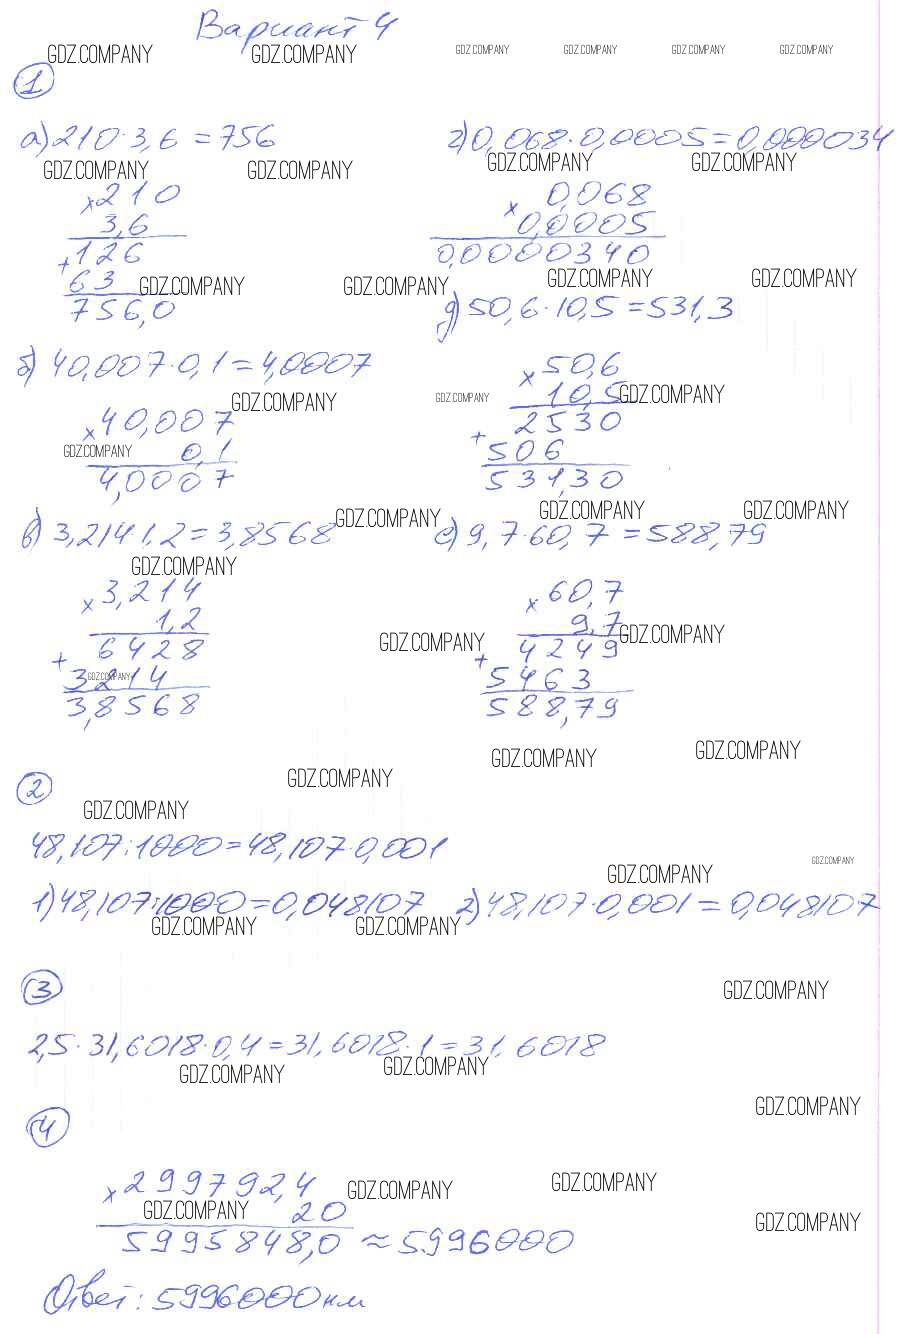 Вариант 4
GDZ.COMPANY GDZ.COMPANY GDZ.COMPANY GDZ.COMPANY GDZ.COMPANY GDZ.COMPANY
1
а) 210·3,6=756
GDZ.COMPANY GDZ.COMPANY
×210
3,6
+126
63 GDZ.COMPANY GDZ.COMPANY
756,0
б) 40,007·0,1=4,0007
GDZ.COMPANY
×40,007
GDZ.COMPANY 0,1
4,0007
в) 3,214·1,2=3,8568 GDZ.COMPANY
GDZ.COMPANY
×3,214
1,2
+6428
3214 GDZ.COMPANY
3,8568
г) 0,068·0,0005=0,000034
GDZ.COMPANY GDZ.COMPANY
×0,068
0,0005
0,0000340
GDZ.COMPANY GDZ.COMPANY
д) 50,6·10,5=531,3
×50,6
GDZ.COMPANY 10,5 GDZ.COMPANY
+2530
506
531,30
GDZ.COMPANY GDZ.COMPANY
е) 9,7·60,7=588,79
×60,7
9,7 GDZ.COMPANY
GDZ.COMPANY +4249
5463
588,79
GDZ.COMPANY GDZ.COMPANY
2
GDZ.COMPANY
GDZ.COMPANY
48,107:1000=48,107·0,001
GDZ.COMPANY GDZ.COMPANY
1) 48,107:1000=0,048107 2) 48,107·0,001=0,048107
GDZ.COMPANY GDZ.COMPANY
3
GDZ.COMPANY
2,5·31,6018·0,4=31,6018·1=31,6018
GDZ.COMPANY GDZ.COMPANY
GDZ.COMPANY
4
×299792,4 GDZ.COMPANY GDZ.COMPANY
GDZ.COMPANY 20
GDZ.COMPANY
5995848,0≈5996000
Ответ: 5996000км